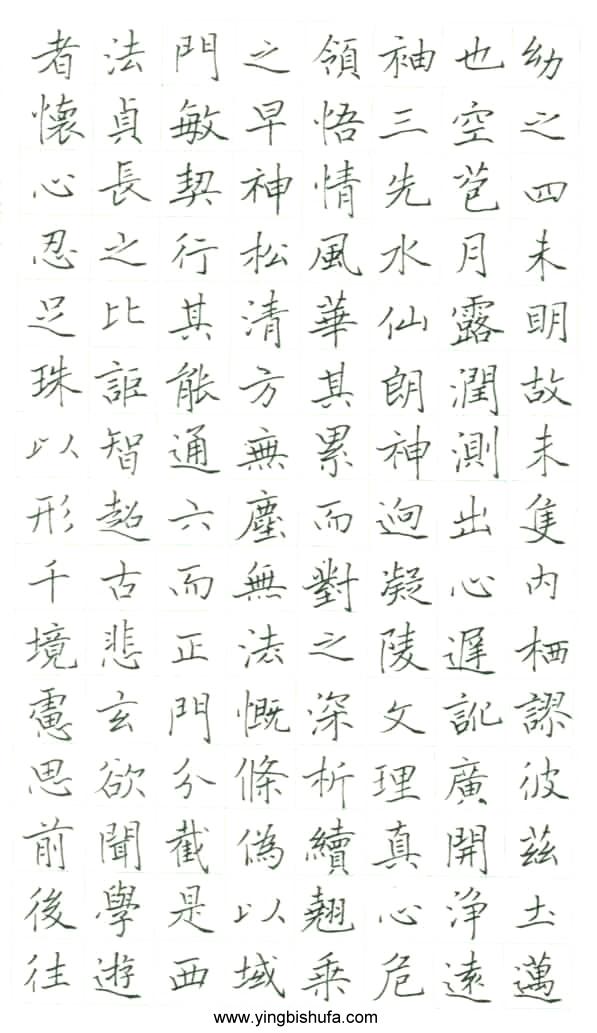 者法門之領袖也幼
懷貞敏早悟三空之
心長契神情先苞四
忍之行松風水月未
足比其清華仙露明
珠詎能方其朗潤故
以智通無累神測未
形超六塵而迥出隻
千古而無對凝心內
境悲正法之陵遲栖
慮玄門慨深文訛謬
思欲分條析理廣彼
前聞截偽續真開茲
後學是以翹心淨土
往遊西域乘危遠邁
www.yingbishufa.com